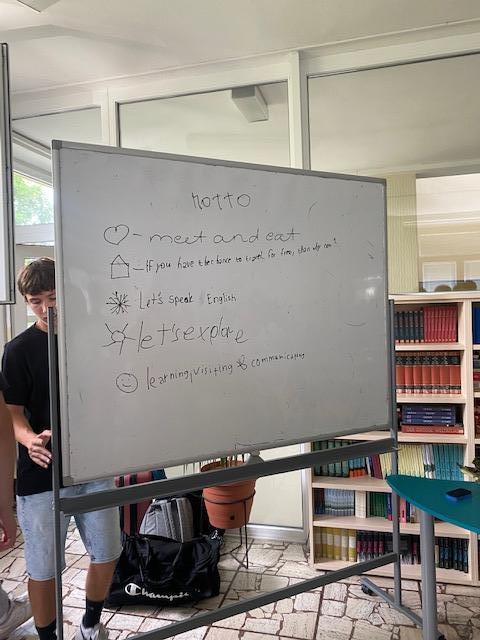 MOTTO
- meet and eat
- if you have the chance to travel for free, than why not?
Let's speak English
let's explore
learning, visiting & communicating
Champion